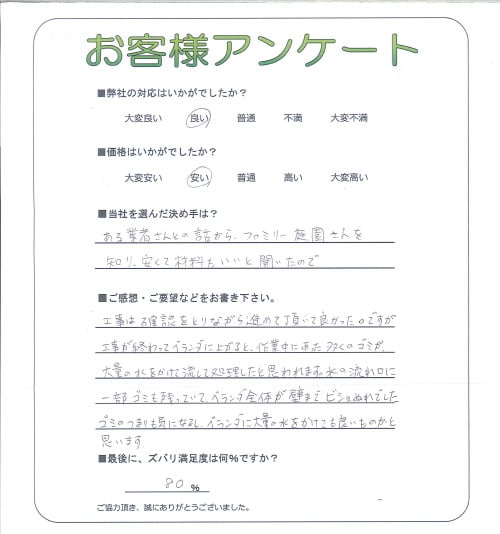 お客様アンケート
■弊社の対応はいかがでしたか？
大変良い 良い 普通 不満 大変不満
■価格はいかがでしたか？
大変安い 安い 普通 高い 大変高い
■当社を選んだ決め手は？
ある業者さんとの話から、ファミリー庭園さんを
知り、安くて材料もいいと聞いたので
■ご感想・ご要望などをお書き下さい。
工事は確認をとりながら進めて頂いて良かったのですが
工事が終わってベランダに上がると、作業中にあった多くのゴミが、
大量の水をかけて流して処理したと思われます。水の流れ口に
一部ゴミも残っていて、ベランダ全体が壁までビショぬれでした
ゴミのつまりも気になるし、ベランダに大量の水をかけても良いものかと
思います。
■最後に、ズバリ満足度は何%ですか？
80 %
ご協力頂き、誠にありがとうございました。